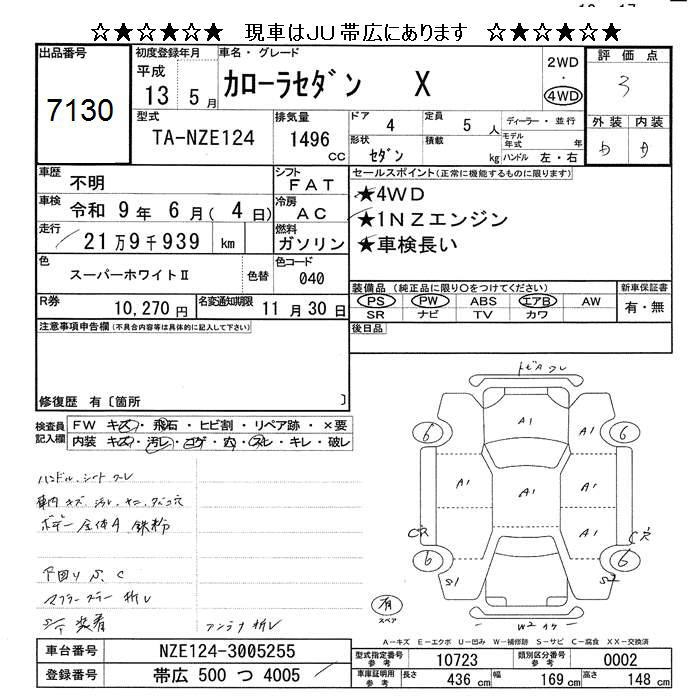 ☆★☆★☆★ 現車はJU帯広にあります ☆★☆★☆★
出品番号
7130
初度登録年月
平成
13 5月
車名・グレード
カローラセダン X
2WD
・
4WD
評価点
3
外装 内装
型式
TA-NZE124
排気量
1496
CC
ドア
4
定員
5 人
ディーラー・並行
形状
セダン
積載
kg
モデル
年式
年
ハンドル 左・右
車歴
不明
シフト
FAT
車検
令和 9年 6月(4日)
冷房
AC
走行
21万9千939 km
燃料
ガソリン
色
スーパーホワイトⅡ
色替
色コード
040
R券
10,270円
名変通知期限
11月30日
セールスポイント(正常に機能するものに限ります)
★4WD
★1NZエンジン
★車検長い
装備品 (純正品に限り○をつけてください)
PS PW ABS エアB AW
SR ナビ TV カワ
新車保証書
有・無
後日品
注意事項申告欄(不具合内容等は具体的に記入して下さい)
修復歴 有〔箇所 〕
検査員
記入欄
FW キズ・飛石・ヒビ割・リペア跡・×要
内装 キズ・汚レ・コゲ・穴・スレ・キレ・破レ
ハンドル、シート スレ
車内 キズ、汚レ、ヤニ、タバコ穴
ボデー 全体A 鉄粉
下回り S、C
マフラーステー 折レ
アンテナ 折レ
A1 A1 A1
A1 A1 A1 A1
6 6
6 6
S1 S2
W2
有
スペア
A-キズ E-エクボ U-凹み W-補修跡 S-サビ C-腐食 XX-交換済
車台番号
NZE124-3005255
登録番号
帯広 500 つ 4005
型式指定番号
参考
10723
類別区分番号
参考
0002
車庫証明用
参考
長さ
436 cm
幅
169 cm
高さ
148 cm